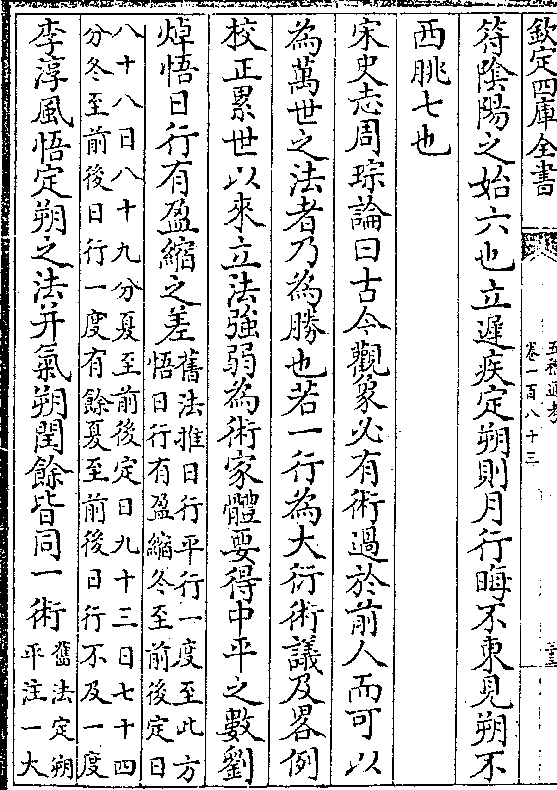 欽定四庫全書
五禮通考
卷一百八十三
符陰陽之始六也立遲疾定朔則月行晦不東見朔不
西朓七也
宋史志周琮論曰古今觀象必有術過於前人而可以
為萬世之法者乃為勝也若一行為大衍術議及畧例
校正累世以來立法強弱為術家體要得中平之數劉
焯悟日行有盈縮之差
舊法推日行平行一度至此方
悟日行有盈縮冬至前後定日
八十八日八十九分夏至前後定日九十三日七十四
分冬至前後日行一度有餘夏至前後日行不及一度
李淳風悟定朔之法并氣朔閏餘皆同一術
舊法定朔
平注一大